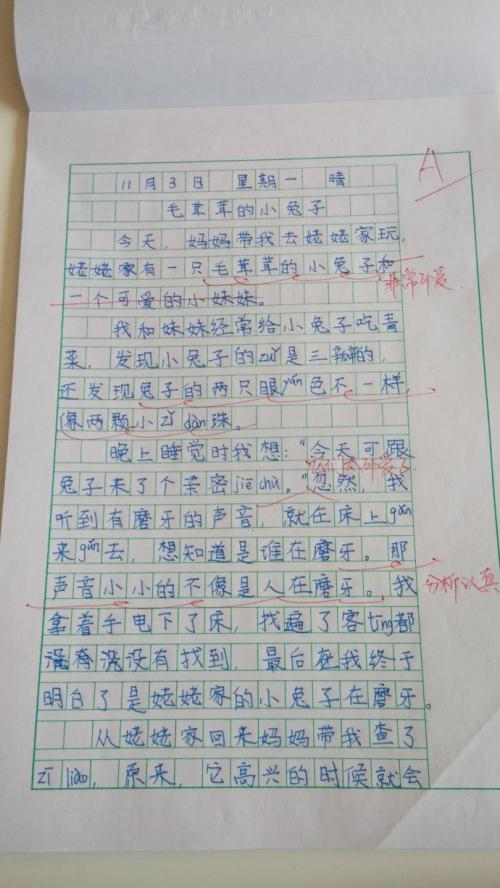 11月3日 星期一 晴
A
毛茸茸的小兔子
今天,妈妈带我去姥姥家玩,
姥姥家有一只毛茸茸的小兔子和
非常可爱
一个可爱的小妹妹。
我和妹妹经常给小兔子吃青
菜,发现小兔子的zuǐ是三瓣的,
还发现兔子的两只眼yǎn色不一样,
像两颗小zǐdàn珠。
晚上睡觉时我想:“今天可跟
兔子来了个亲密jiēchù。”忽然,我
听到有磨牙的声音,就在床上gǔn
来gǔn去,想知道是谁在磨牙。那
声音小小的不像是人在磨牙。我
分析认真
拿着手电下了床,找遍了客tīng都
没有找到,最后我终于
明白了是姥姥家的小兔子在磨牙。
从姥姥家回来妈妈带我查了
zīliào,原来,它高兴的时候就会